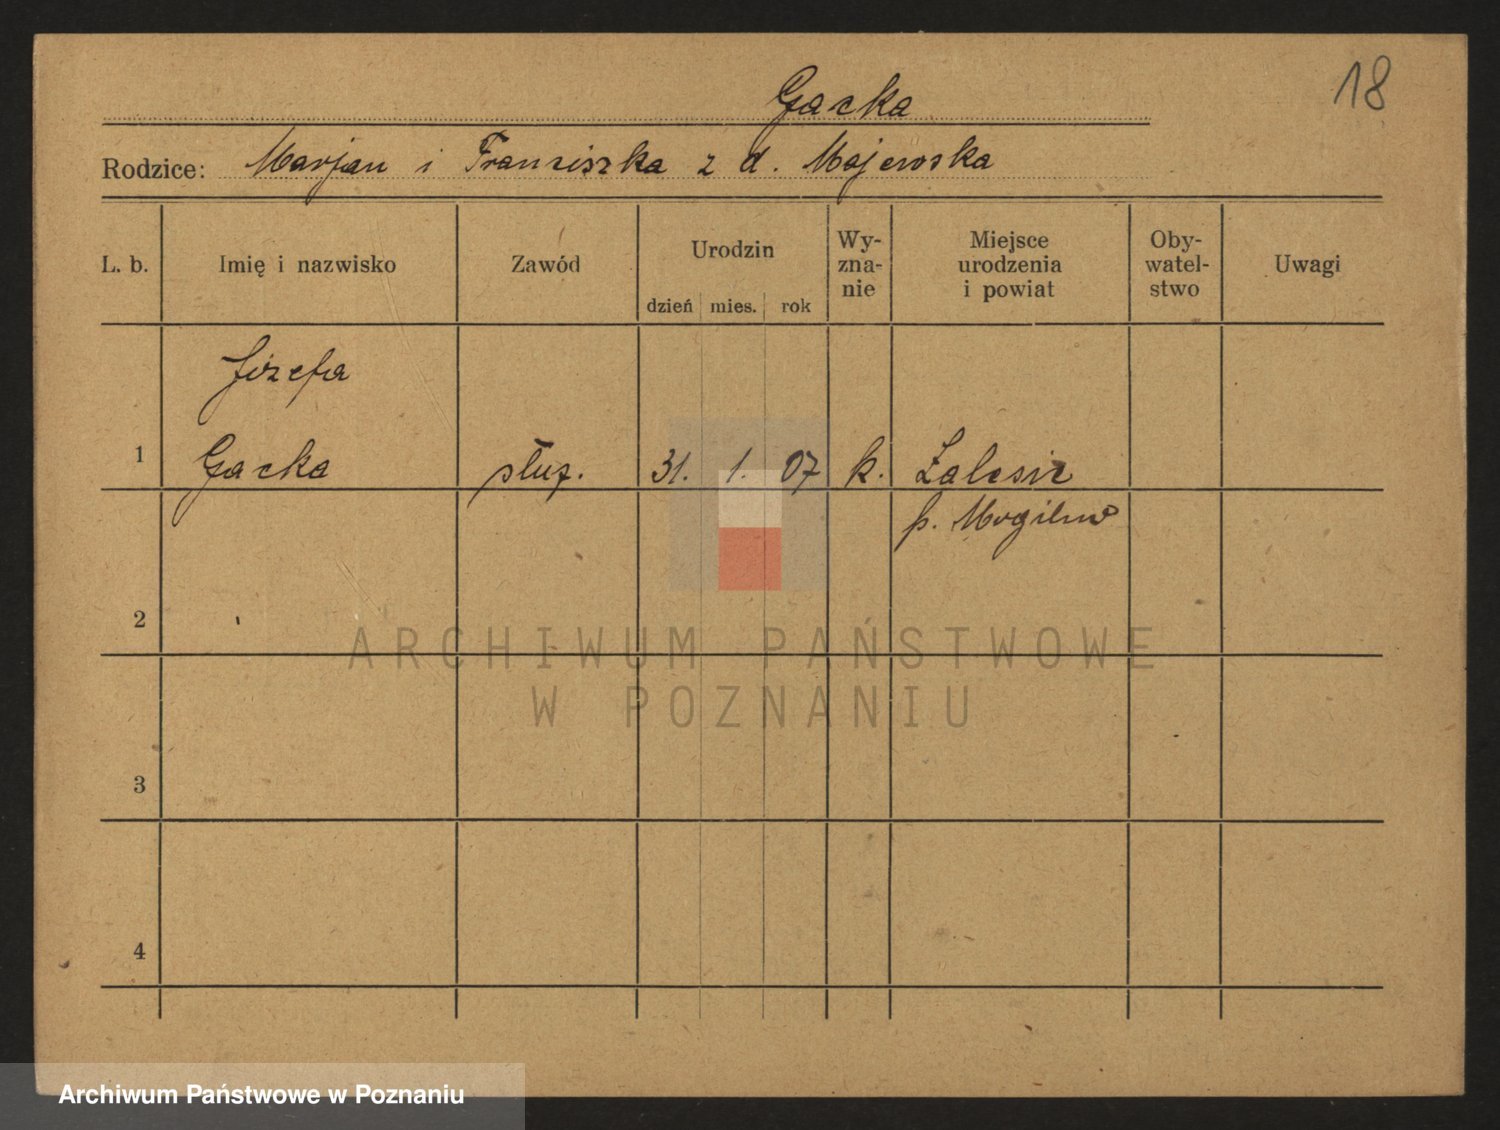 18
Gacka
Rodzice: Marjan i Franciszka z d. Majewska
L. b. Imię i nazwisko Zawód Urodzin dzień mies. rok Wy-zna-nie Miejsce urodzenia i powiat Oby-watel-stwo Uwagi
Józefa
1 Gacka służ. 31. 1. 07 k. Zalesie
p. Mogilno
2
ARCHIWUM PAŃSTWOWE
W POZNANIU
3
4
Archiwum Państwowe w Poznaniu